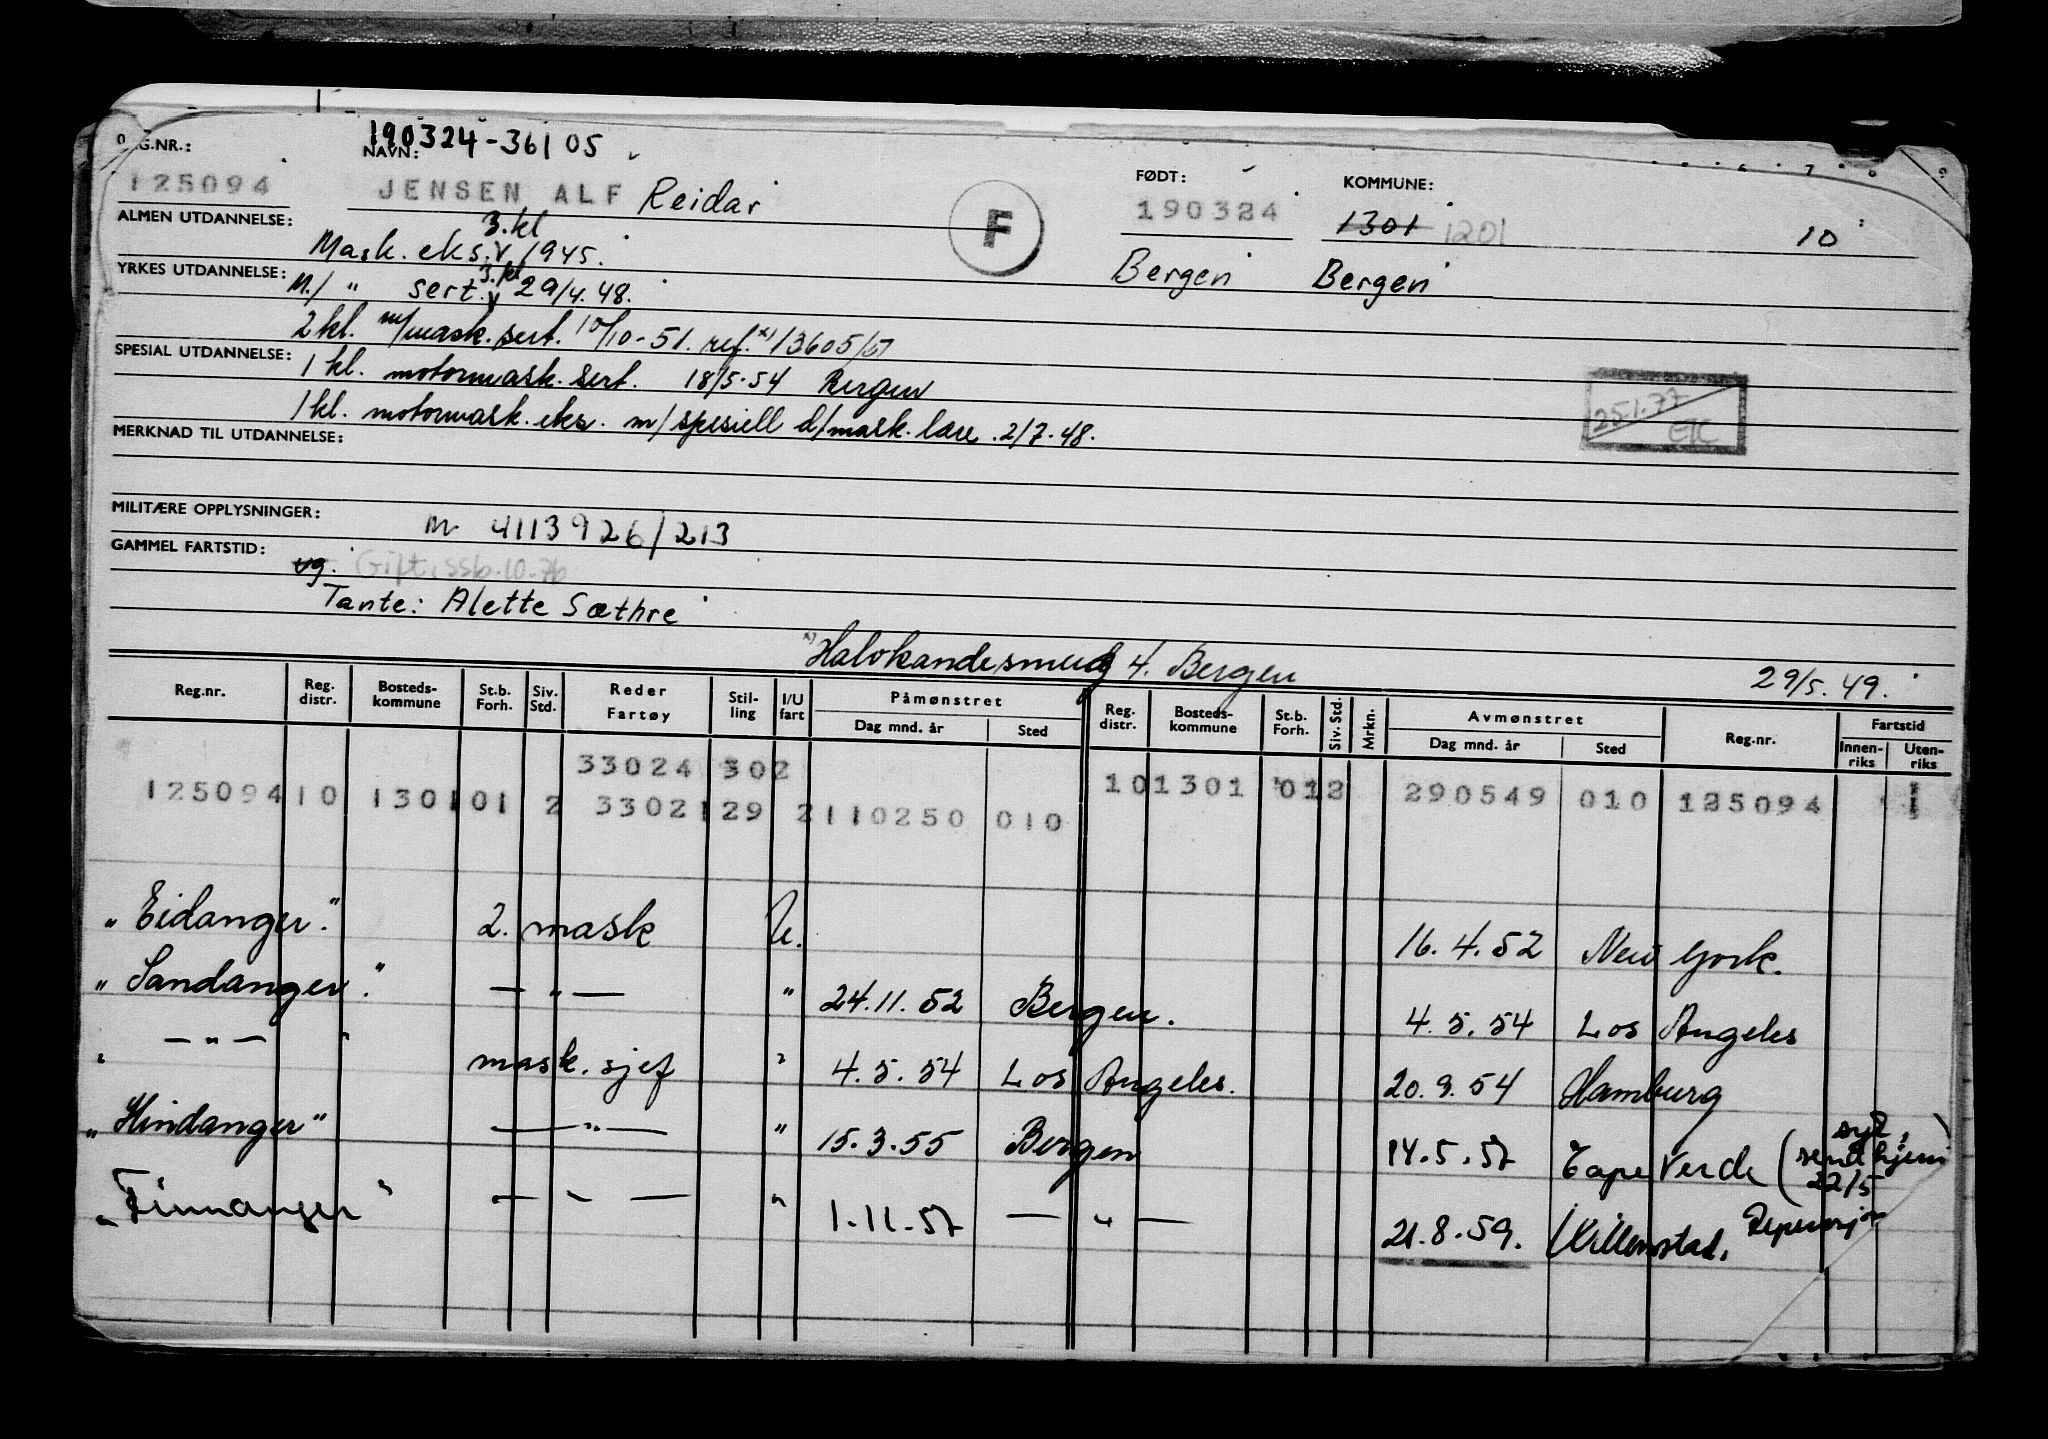 190324-36105
REG.NR.: NAVN: FØDT: KOMMUNE:
125094 JENSEN ALF Reidar F 190324 1301 1201 10
ALMEN UTDANNELSE: Mask. eks. 3.kl v 1945. Bergen Bergen
YRKES UTDANNELSE: M./ " sert. 3.kl v 29/4.48.
2 kl. m/mask. sert. 10/10-51. ref. x) 13605/67
SPESIAL UTDANNELSE: 1 kl. motormask. sert. 18/5.54 Bergen
1 kl. motormask. eks. m/spesiell d/mask. lære 2/7.48.
25.1.77
MERKNAD TIL UTDANNELSE:
MILITÆRE OPPLYSNINGER: m 4113926/213
GAMMEL FARTSTID:
ug. Gift, ssb.10-76
Tante: Alette Sæthre
x) Halvkandesmug 4. Bergen 29/5.49.
Reg.nr. Reg. distr. Bosteds- kommune St.b. Forh. Siv. Std. Reder Fartøy Stil- ling I/U fart Påmønstret Dag mnd. år Sted Reg. distr. Bosteds- kommune St.b. Forh. Siv. Std. Mrkn. Avmønstret Dag mnd. år Sted Reg.nr. Fartstid Innen- riks Uten- riks
33024 302
125094 10 1301 01 2 33021 29 2 110250 010 10 1301 01 2 290549 010 125094 1
"Eidanger". 2. mask U. 16.4.52 New York.
"Sandanger". — " — " 24.11.52 Bergen. 4.5.54 Los Angeles
" — " — " mask. sjef " 4.5.54 Los Angeles. 20.9.54 Hamburg
"Hindanger" — " — " 15.3.55 Bergen 14.5.57 Cape Verde (syk, sendt hjem 22/5)
"Finnanger" — " — " 1.11.57 — " — 21.8.59. Willemstad.